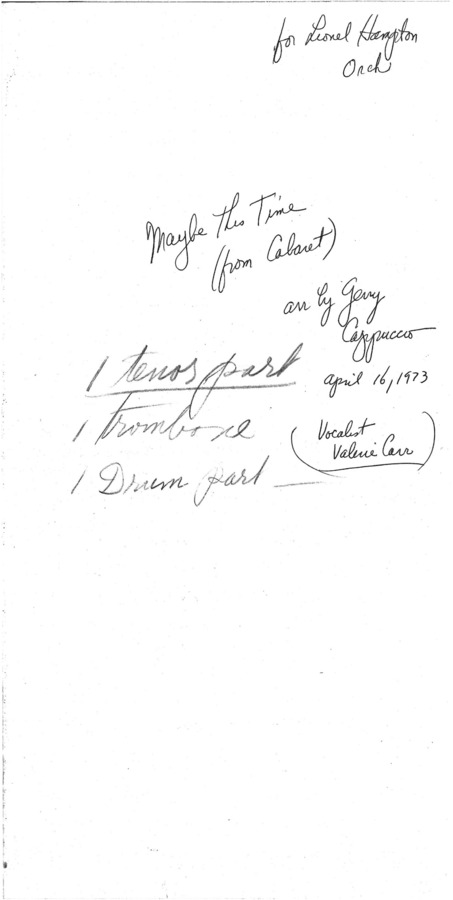 for Lionel Hampton
Orch
Maybe This Time
(from Cabaret)
arr by Gerry
Cappuccio
april 16, 1973
1 tenor part
1 Trombone
1 Drum part
(Vocalist
Valerie Carr)